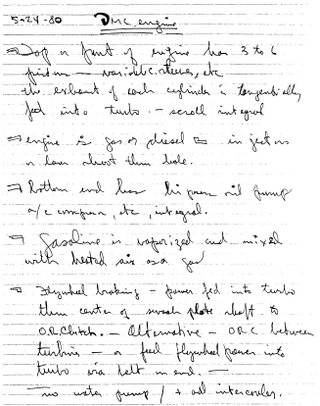 5-24-80 DMC engine
Top or front of engine has 3 to 6
pistons — variable c. sleeves, etc
the exhaust of each cylinder is tangentially
fed into turbo. — scroll integral
engine is gas or diesel injectors
or have short thin hole.
Bottom end has hi press oil pump
a/c compressor, etc, integral.
Gasoline is vaporized and mixed
with heated air as a gas
Flywheel braking — power fed into turbo
thru center of swash plate shaft to
O.R. Clutch. — Alternative — ORC between
turbine — or feed flywheel power into
turbo via belt on end. —
— no water pump / + oil intercooler.